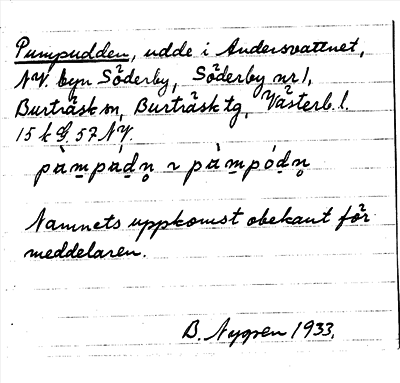 Pumpudden, udde i Andersvattnet,
NV. byn Söderby, Söderby nr 1,
Burträsk sn, Burträsk tg, Västerb. l.
15 k 57 NV.
Namnets uppkomst obekant för
meddelaren.
B. Nygren 1933.